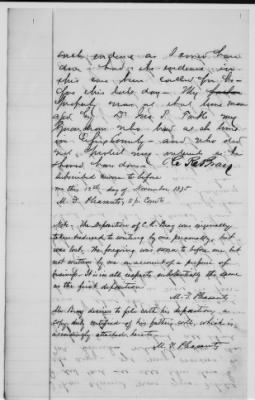 such evidence as I would have
done had the evidence in
this case been called for be-
fore this late day. My
property was at that time man-
aged by Dr. Jas. P. Parks my
Guardian who lived at his home
in County - and who did
not
should have done. C. R. Bray
Subscribed & sworn to before
me this 12th day of November 1875
M. F. Pleasants, Sp. Com'r
Note: The deposition of C. R. Bray was originally
taken & reduced to writing by me personally, but
was lost. The foregoing was sworn to before me but
not written by me on account of a pressure of
business. It is in all respects substantially the same
as the first deposition.
M. F. Pleasants
Mr. Bray desires to file with his deposition, a
copy duly certified of his father's will, which is
accordingly attached hereto.
M. F. Pleasants